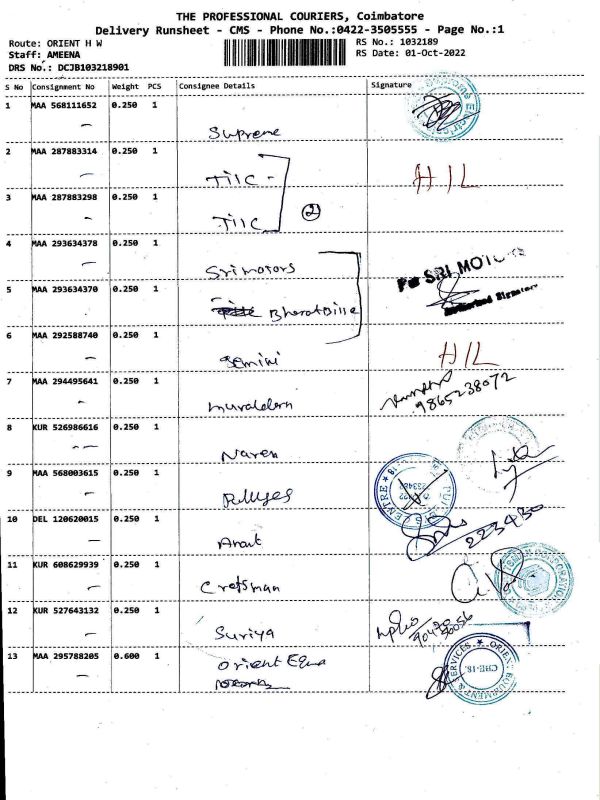 THE PROFESSIONAL COURIERS, Coimbatore
Delivery Runsheet - CMS - Phone No.:0422-3505555 - Page No.:1
Route: ORIENT H W
RS No.: 1032189
Staff: AMEENA
RS Date: 01-Oct-2022
DRS No.: DCJB103218901
S No Consignment No Weight PCS Consignee Details Signature
1 MAA 568111652 0.250 1
Supreme
2 MAA 287883314 0.250 1
TIIC - HIL
3 MAA 287883298 0.250 1
TIIC 2
4 MAA 293634378 0.250 1
Srimotors For SRI MOTORS
5 MAA 293634370 0.250 1
Authorised Signatory
6 MAA 292588740 0.250 1
Gemini HIL
7 MAA 294495641 0.250 1
9865238072
8 KUR 526986616 0.250 1
Naren
9 MAA 568003615 0.250 1
10 DEL 120620015 0.250 1
223450
11 KUR 608629939 0.250 1
Craftsman
12 KUR 527643132 0.250 1
Suriya
13 MAA 295788205 0.600 1
Orient
SERVICES ORIENT EQUIPMENT & CBE-18.